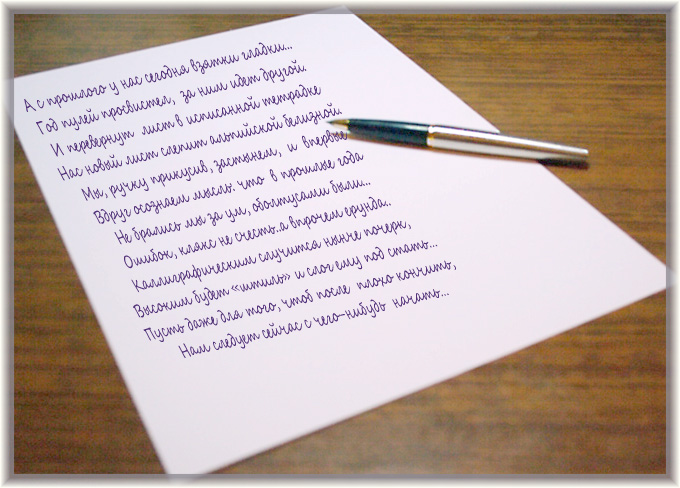 А с прошлого у нас сегодня взятки гладки...
Год пулей просвистел, за ним идет другой.
И перевернут лист в исписанной тетрадке
Нас новый лист слепит альпийской белизной.
Мы, ручку прикусив, застынем, и впервые
Вдруг осознаем мысль: что в прошлые года
Не брались мы за ум, оболтусами были...
Ошибок, клякс не счесть..а впрочем ерунда..
Каллиграфическим случится нынче почерк,
Высоким будет «штиль» и слог ему под стать...
Пусть даже для того, чтоб после плохо кончить,
Нам следует сейчас с чего-нибудь начать...